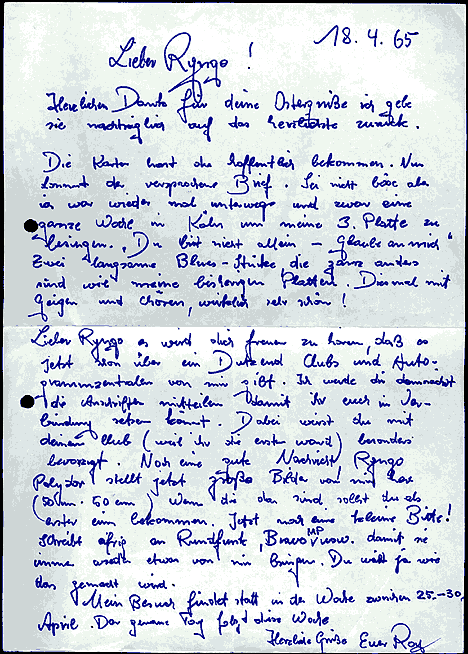 18.4.65
Lieber Ryngo!
Herzlichen Dank für deine Ostergrüße ich gebe
sie nachträglich auf das herzlichste zurück.
Die Karten hast du hoffentlich bekommen. Nun
kommt der versprochene Brief. Sei nicht böse aber
ich war wieder mal unterwegs und zwar eine
ganze Woche in Köln um meine 3. Platte zu
besingen. "Du bist nicht allein - Glaube an mich"
Zwei langsame Blues-Stücke die ganz anders
sind wie meine bisherigen Platten. Diesmal mit
Geigen und Chören, wirklich sehr schön!
Lieber Ryngo es wird dich freuen zu hören, daß es
jetzt schon über ein Dutzend Clubs und Auto-
grammzentralen von mir gibt. Ich werde dir demnächst
die Anschriften mitteilen damit ihr euch in Ver-
bindung setzen könnt. Dabei wirst du mit
deinem Club (weil ihr die ersten ward) besonders
bevorzugt. Noch eine gute Nachricht Ryngo
Polydor stellt jetzt große Bilder von mir her
(50cm · 50cm) Wenn die da sind sollst du als
erster ein bekommen. Jetzt noch eine kleine Bitte!
Schreibt eifrig an Rundfunk, Bravo, MP usw. damit sie
immer wieder etwas von mir bringen. Du weißt ja wie
das gemacht wird.
Mein Besuch findet statt in der Woche zwischen 25.-30.
April. Der genaue Tag folgt diese Woche
Herzliche Grüße Euer Roy